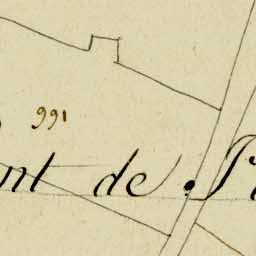 991
nt de